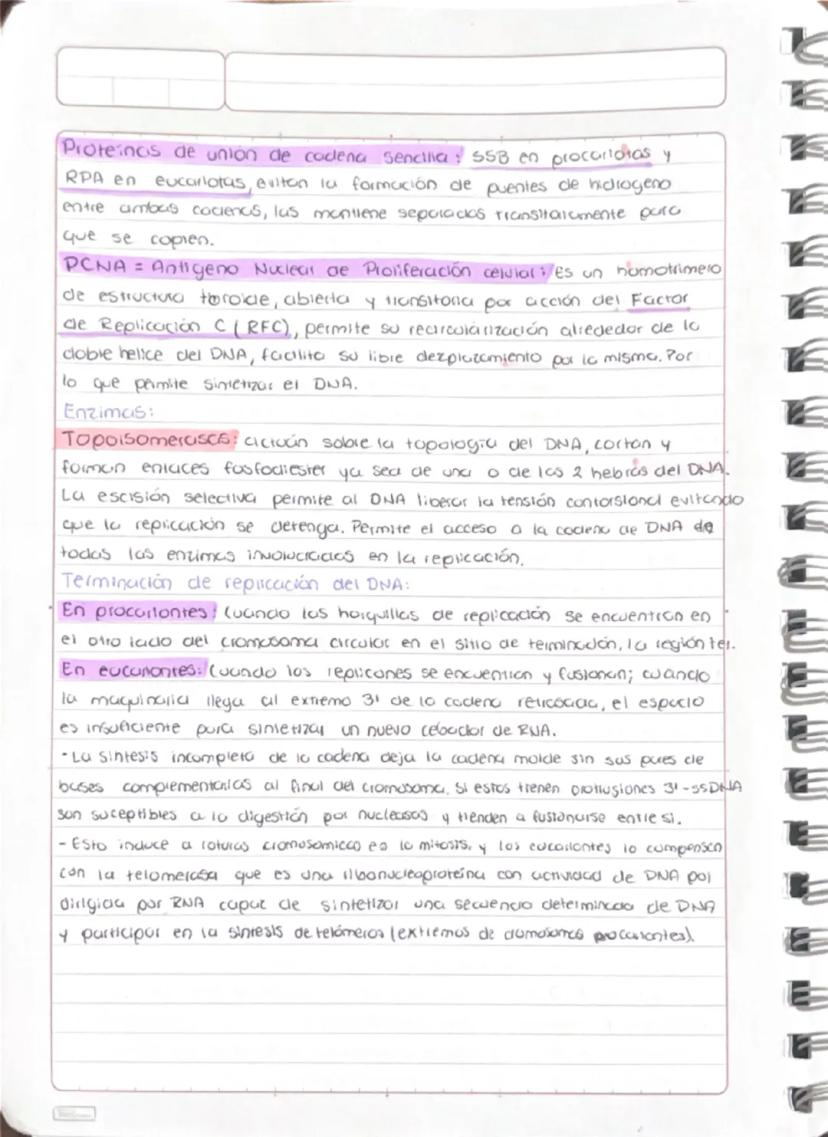 Proteínas de unión de cadena sencilla: SSB en procariotas y
RPA en eucariotas, evitan la formación de puentes de hidrogeno
entre ambas cadenas, las mantiene separadas transitoriamente para
que se copien.
PCNA = Antígeno Nuclear de Proliferación celular: Es un homotrimero
de estructura toroide, abierta y transitoria por acción del Factor
de Replicación C (RFC), permite su recircularización alrededor de la
doble helice del DNA, facilita su libre dezplazamiento por la misma. Por
lo que permite sintetizar el DNA.
Enzimas:
Topoisomerasas: actúan sobre la topología del DNA, cortan y
forman enlaces fosfodiester ya sea de una o de las 2 hebras del DNA.
La escisión selectiva permite al DNA liberar la tensión contorsional evitando
que la replicación se detenga. Permite el acceso a la cadena de DNA de
todas las enzimas involucradas en la replicación.
Terminación de replicación del DNA:
En procariontes: Cuando las horquillas de replicación se encuentran en
el otro lado del cromosoma circular en el sitio de terminación, la región ter.
En eucariontes: Cuando los replicones se encuentran y fusionan; cuando
la maquinaria llega al extremo 3' de la cadena retrocede, el espacio
es insuficiente para sintetizar un nuevo cebador de RNA.
- La síntesis incompleta de la cadena deja la cadena molde sin sus pares de
bases complementarias al final del cromosoma. Si estos tienen protrusiones 3'-ssDNA
son suceptibles a la digestión por nucleasas y tienden a fusionarse entre si.
- Esto induce a roturas cromosomicas en la mitosis, y los eucariontes lo compensan
con la telomerasa que es una ribonucleoproteína con actividad de DNA pol
dirigida por RNA capaz de sintetizar una secuencia determinada de DNA
y participar en la síntesis de telómeros (extremos de cromosomas eucariontes).